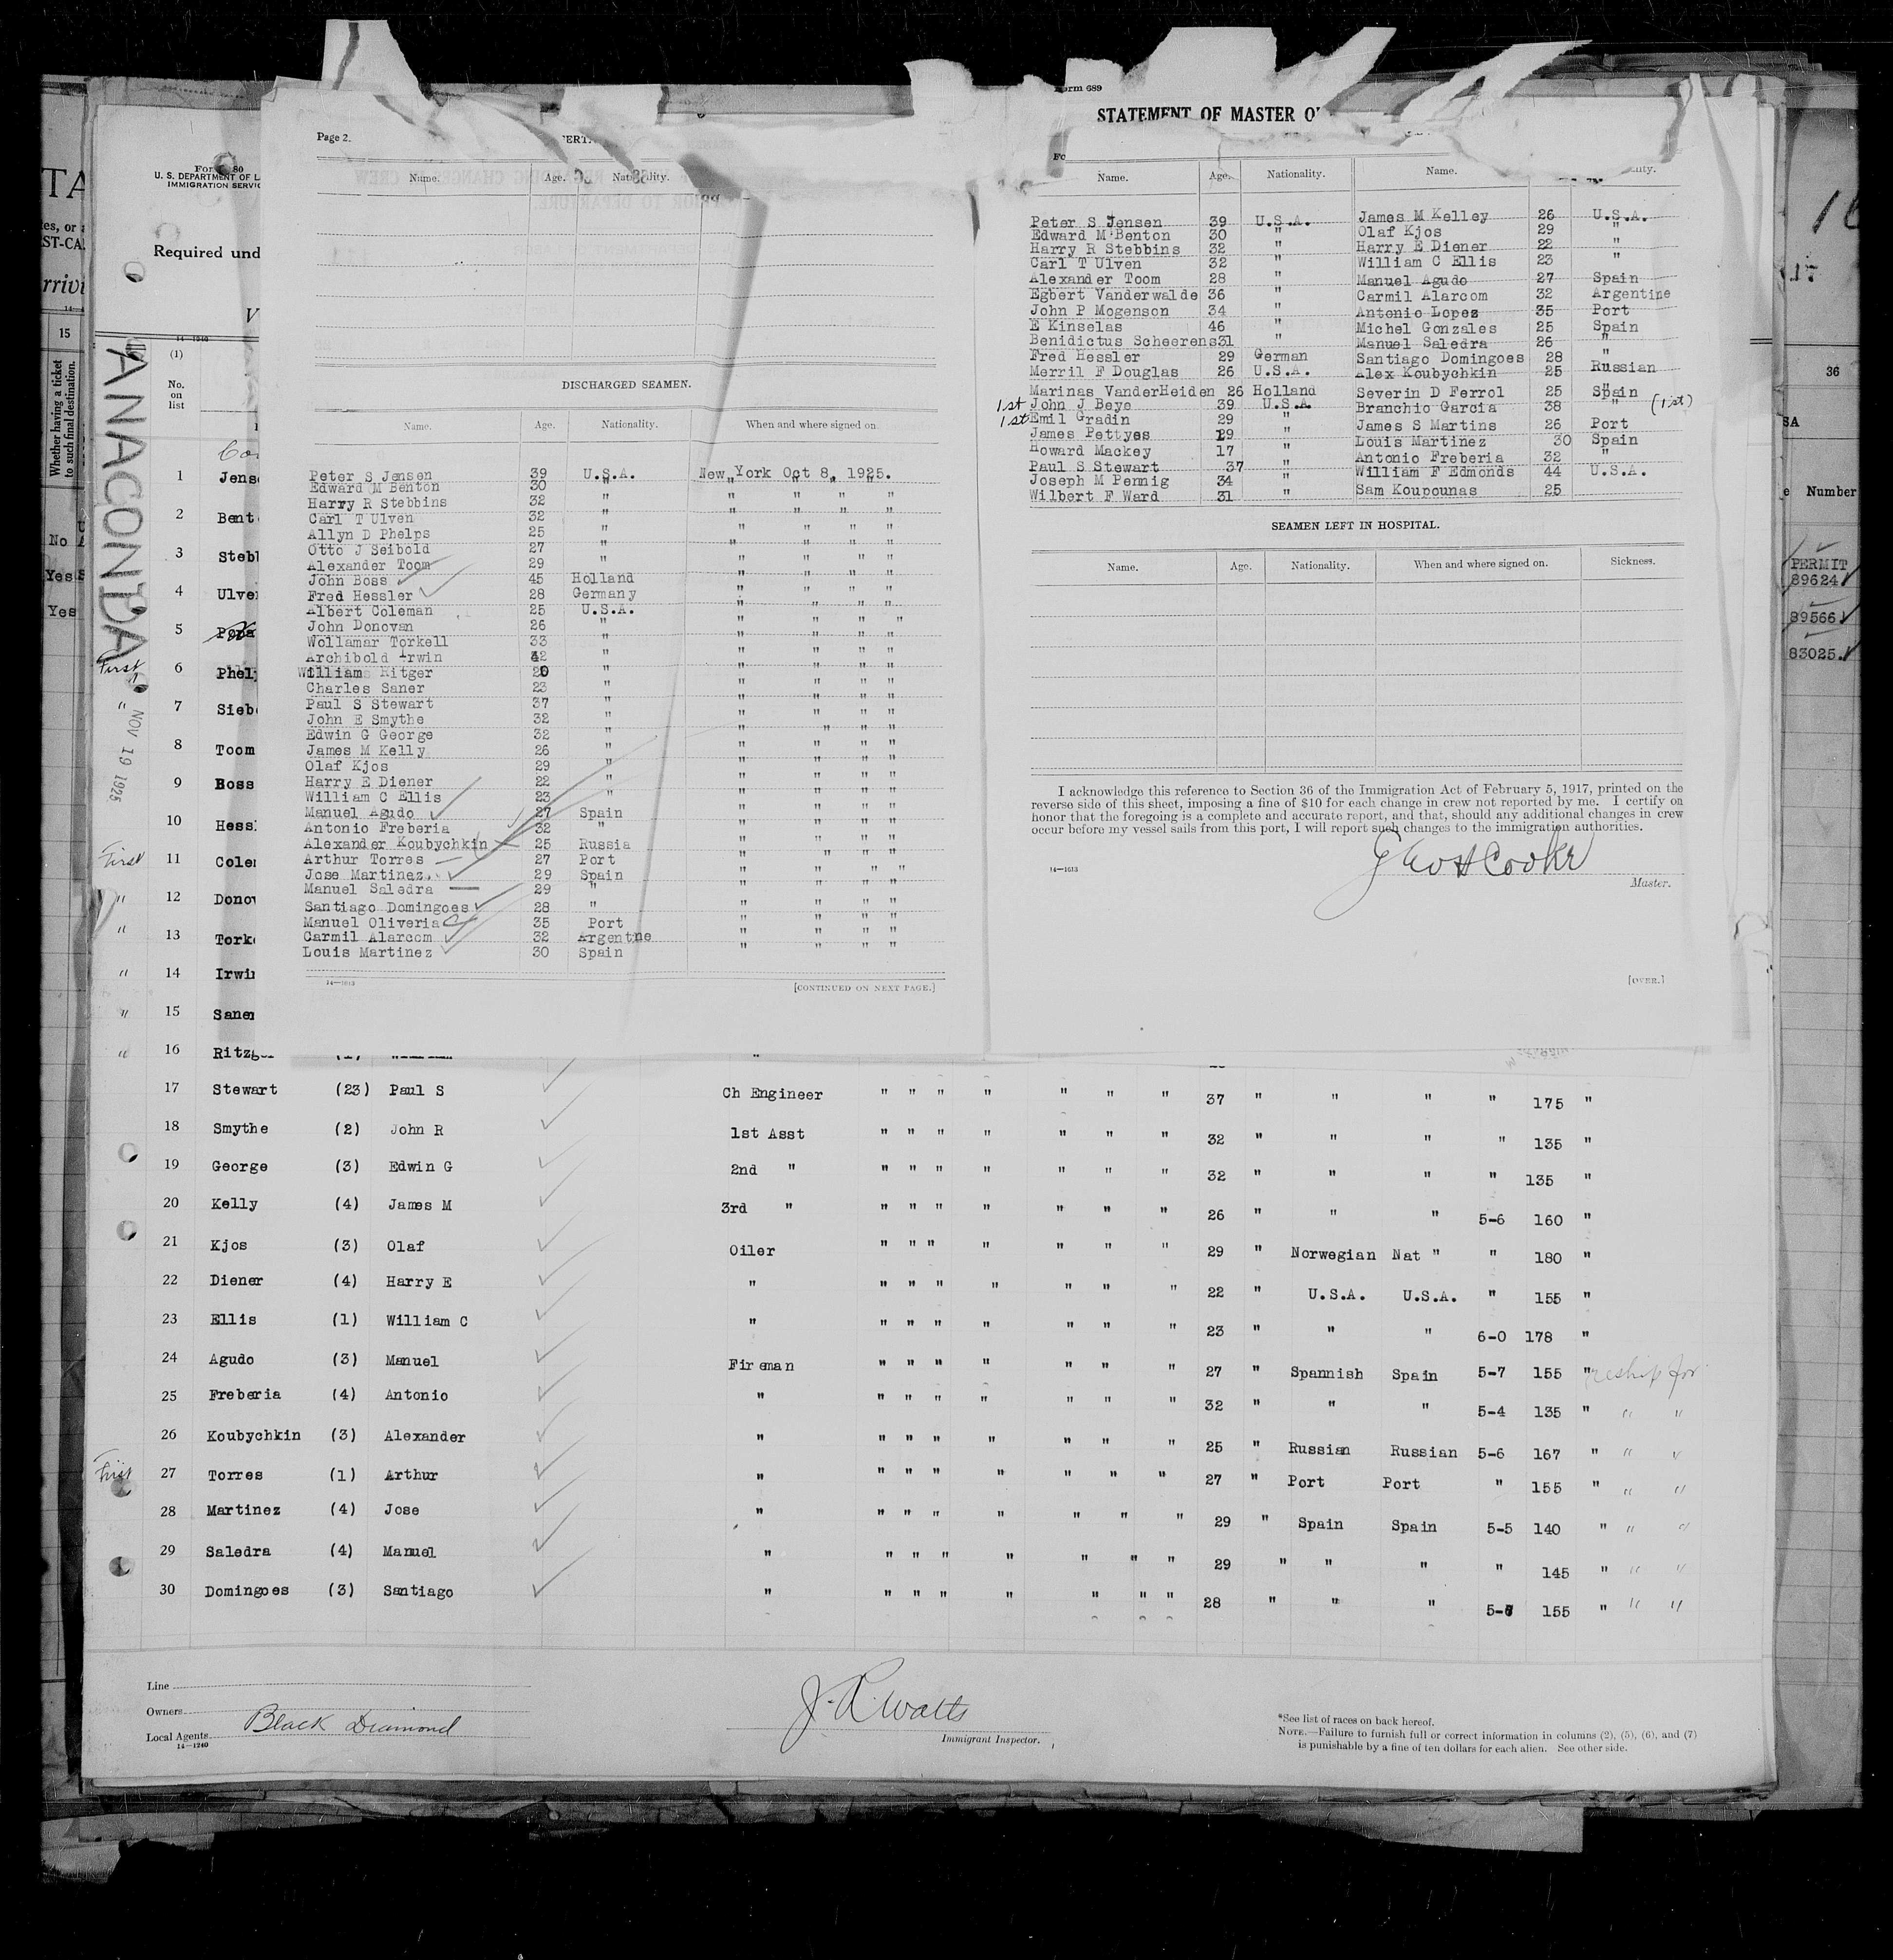 Form 689
STATEMENT OF MASTER
Page 2.
Name. Age. Nationality.
DISCHARGED SEAMEN.
Name. Age. Nationality. When and where signed on.
Peter S Jensen 39 U.S.A. New York Oct 8, 1925.
Edward M Benton 30 " " " " "
Harry R Stebbins 32 " " " " "
Carl T Ulven 32 " " " " "
Allyn D Phelps 25 " " " " "
Otto J Seibold 27 " " " " "
Alexander Toom 29 " " " " "
John Boss 45 Holland " " " "
Fred Hessler 28 Germany " " " "
Albert Coleman 25 U.S.A. " " " "
John Donovan 26 " " " " "
Wollamar Torkell 33 " " " " "
Archibold Irwin 42 " " " " "
William Ritger 20 " " " " "
Charles Saner 23 " " " " "
Paul S Stewart 37 " " " " "
John E Smythe 32 " " " " "
Edwin G George 32 " " " " "
James M Kelly 26 " " " " "
Olaf Kjos 29 " " " " "
Harry E Diener 22 " " " " "
William C Ellis 23 " " " " "
Manuel Agudo 27 Spain " " " "
Antonio Freberia 32 " " " " "
Alexander Koubychkin 25 Russia " " " "
Arthur Torres 27 Port " " " "
Jose Martinez 29 Spain " " " "
Manuel Saledra 29 " " " " "
Santiago Domingoes 28 " " " " "
Manuel Oliveria 35 Port " " " "
Carmil Alarcom 32 Argentne " " " "
Louis Martinez 30 Spain
14—1613 [CONTINUED ON NEXT PAGE.]
Name. Age. Nationality. Name.
Peter S Jensen 39 U.S.A. James M Kelley 26 U.S.A.
Edward M Benton 30 " Olaf Kjos 29 "
Harry R Stebbins 32 " Harry E Diener 22 "
Carl T Ulven 32 " William C Ellis 23 "
Alexander Toom 28 " Manuel Agudo 27 Spain
Egbert Vanderwalde 36 " Carmil Alarcom 32 Argentine
John P Mogenson 34 " Antonio Lopez 35 Port
E Kinselas 46 " Michel Gonzales 25 Spain
Benidictus Scheerens 31 " Manuel Saledra 26 "
Fred Hessler 29 German Santiago Domingoes 28 "
Merril F Douglas 26 U.S.A. Alex Koubychkin 25 Russian
Marinas VanderHeiden 26 Holland Severin D Ferrol 25 Spain
1st John J Beye 39 U.S.A. Branchio Garcia 38 " (1st)
1st Emil Gradin 29 " James S Martins 26 Port
James Pettyes 29 " Louis Martinez 30 Spain
Howard Mackey 17 " Antonio Freberia 32 "
Paul S Stewart 37 " William F Edmonds 44 U.S.A.
Joseph M Pennig 34 Sam Koupounas 25
Wilbert F Ward 31 "
SEAMEN LEFT IN HOSPITAL.
Name. Age. Nationality. When and where signed on. Sickness.
I acknowledge this reference to Section 36 of the Immigration Act of February 5, 1917, printed on the
reverse side of this sheet, imposing a fine of $10 for each change in crew not reported by me. I certify on
honor that the foregoing is a complete and accurate report, and that, should any additional changes in crew
occur before my vessel sails from this port, I will report such changes to the immigration authorities.
Geo H Cooke
14—1613 Master.
[OVER.]
U. S. DEPARTMENT OF
IMMIGRATION
Required
14—1240
(1)
No.
on
list
ANACONDA
NOV 19 1925
1
2
3
4
5
First 6
" 7
8 Toom
9 Boss
10
First 11
" 12
" 13
" 14
" 15
" 16
17 Stewart (23) Paul S Ch Engineer " " " " " " " 37 " " " " 175 "
18 Smythe (2) John R 1st Asst " " " " " " " 32 " " " " 135 "
19 George (3) Edwin G 2nd " " " " " " " " 32 " " " " 135 "
20 Kelly (4) James M 3rd " " " " " " " " 26 " " " 5-6 160 "
21 Kjos (3) Olaf Oiler " " " " " " " 29 " Norwegian Nat " " 180 "
22 Diener (4) Harry E " " " " " " " " 22 " U.S.A. U.S.A. " 155 "
23 Ellis (1) William C " " " " " " " " 23 " " " 6-0 178 "
24 Agudo (3) Manuel Fireman " " " " " " " 27 " Spannish Spain 5-7 155 " reship for
25 Freberia (4) Antonio " " " " " " " " 32 " " " 5-4 135 " " "
26 Koubychkin (3) Alexander " " " " " " " " 25 " Russian Russian 5-6 167 " " "
First 27 Torres (1) Arthur " " " " " " " " 27 " Port Port " 155 " " "
28 Martinez (4) Jose " " " " " " " " 29 " Spain Spain 5-5 140 " " "
29 Saledra (4) Manuel " " " " " " " " 29 " " " " 145 " " "
30 Domingoes (3) Santiago " " " " " " " " 28 " " " 155 " " "
Line
Owners
Local Agents Black Diamond
14—1240
J. R. Watts
Immigrant Inspector.
*See list of races on back hereof.
NOTE.—Failure to furnish full or correct information in columns (2), (5), (6), and (7)
is punishable by a fine of ten dollars for each alien. See other side.
15
Whether having a ticket
to such final destination.
No
Yes
Yes
36
Number
PERMIT
89624
89566
83025